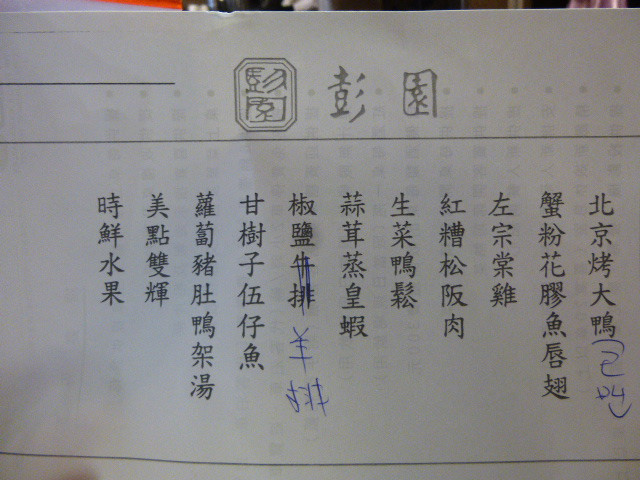 彭園
彭園
北京烤大鴨
蟹粉花膠魚唇翅
左宗棠雞
紅糟松阪肉
生菜鴨鬆
蒜茸蒸皇蝦
椒鹽牛排羊排
甘樹子伍仔魚
蘿蔔豬肚鴨架湯
美點雙輝
時鮮水果